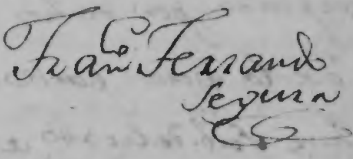 Fran.co Ferrando
Segura